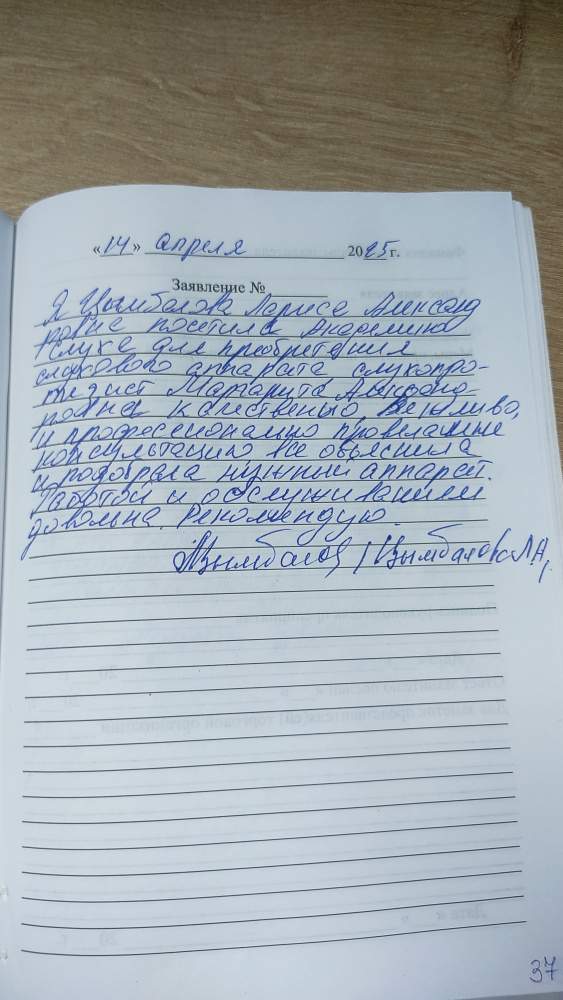 «14» апреля 2025 г.
Заявление №
Я Цымбалова Лариса Александ
ровна посетила Академию
Слуха для приобретения
слухового аппарата слухопро-
тезист Маргарита Александ
ровна качественно, вежливо,
и профессионально провела мне
консультацию все объяснила
и подобрала нужный аппарат.
Работой и обслуживанием
довольна. Рекомендую.
Цымбалова / Цымбалова Л.А,
37